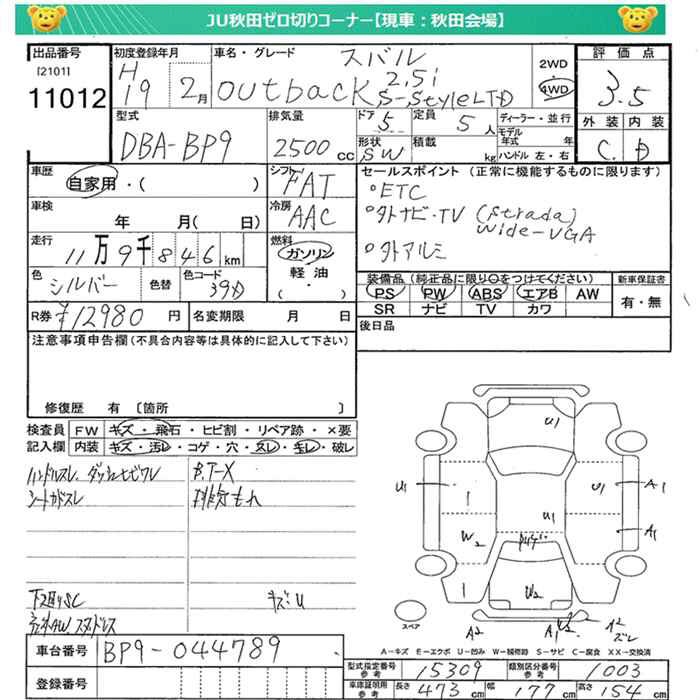 JU秋田ゼロ切りコーナー【現車：秋田会場】
出品番号
[2101]
11012
初度登録年月
H19 2月
車名・グレード
スバル
outback 2.5i
S-StyleLTD
2WD
4WD
評価点
3.5
外装 内装
C D
型式
DBA-BP9
排気量
2500 cc
ドア 5
形状 SW
定員 5 人
積載 kg
ディーラー・並行
モデル年式 年
ハンドル 左・右
車歴
自家用・( )
シフト FAT
冷房 AAC
セールスポイント (正常に機能するものに限ります)
°ETC
°外ナビ・TV (Strada)
Wide-VGA
°外アルミ
車検
年 月( 日)
走行
11万9千846km
燃料
ガソリン
軽油
( ・ )
色
シルバー
色替
色コード
39D
装備品 (純正品に限り○をつけてください)
PS PW ABS エアB AW
SR ナビ TV カワ
新車保証書
有・無
R券 ¥12980 円
名変期限 月 日
後日品
注意事項申告欄 (不具合内容等は具体的に記入して下さい)
修復歴 有 〔箇所 〕
検査員記入欄
FW キズ・飛石・ヒビ割・リペア跡・×要
内装 キズ・汚レ・コゲ・穴・スレ・モレ・破レ
ハンドルスレ、ダッシュヒビワレ
B,T-X
排気もれ
下廻りSC
キズ:U
U1
U1
U1
A1
U1
A1
W2
W2
A2
スペア
A2
ズレ
A－キズ E－エクボ U－凹み W－補修跡 S－サビ C－腐食 XX－交換済
車台番号
BP9-044789
登録番号
型式指定番号 参考
15309
類別区分番号 参考
1003
車庫証明用 参考
長さ 473 cm
幅 177 cm
高さ 154 cm